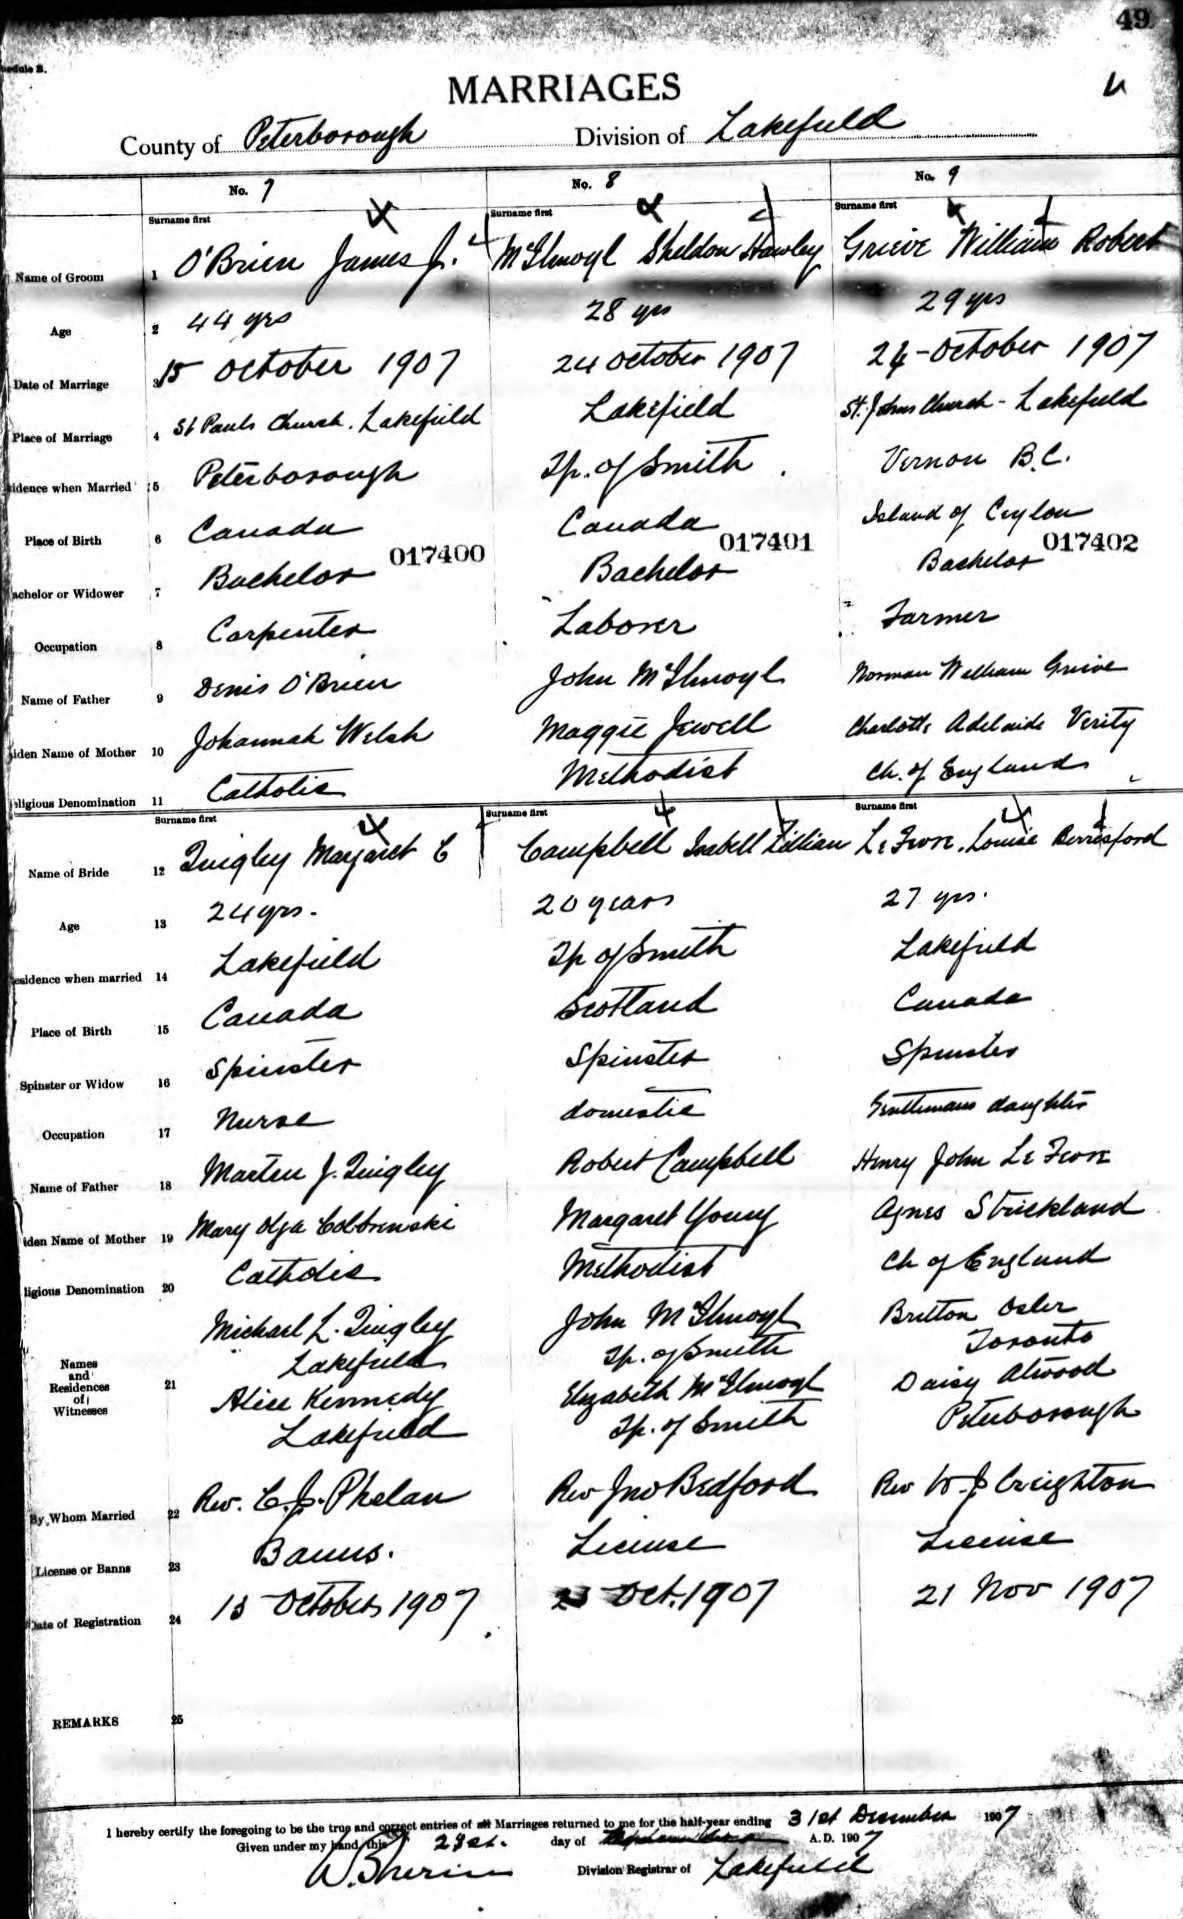 49
Schedule B.
MARRIAGES
County of Peterborough Division of Lakefield
No. 7 No. 8 No. 9
Surname first Surname first Surname first
Name of Groom 1 O'Brien James J. McIlmoyl Sheldon Hawley Grieve William Robert
Age 2 44 yrs 28 yrs 29 yrs
Date of Marriage 3 15 October 1907 24 October 1907 24 - October 1907
Place of Marriage 4 St Pauls Church. Lakefield Lakefield St. Johns Church - Lakefield
sidence when Married 5 Peterborough Tp. of Smith Vernon B.C.
Place of Birth 6 Canada Canada Island of Ceylon
017400 017401 017402
achelor or Widower 7 Bachelor Bachelor Bachelor
Occupation 8 Carpenter Laborer Farmer
Name of Father 9 Denis O'Brien John McIlmoyl Norman William Grieve
iden Name of Mother 10 Johannah Welsh Maggie Jewell Charlotte Adelaide Verity
eligious Denomination 11 Catholic Methodist Ch. of England
Surname first Surname first Surname first
Name of Bride 12 Quigley Margaret C Campbell Isabell Lillian Le Fevre, Louise Berresford
Age 13 24 yrs. 20 years 27 yrs.
esidence when married 14 Lakefield Tp of Smith Lakefield
Place of Birth 15 Canada Scotland Canada
Spinster or Widow 16 Spinster Spinster Spinster
Occupation 17 Nurse domestic Gentlemans daughter
Name of Father 18 Marten J. Quigley Robert Campbell Henry John Le Fevre
iden Name of Mother 19 Mary Olga Margaret Young Agnes Strickland
ligious Denomination 20 Catholic Methodist Ch of England
Names and Residences of Witnesses 21 Michael L. Quigley John McIlmoyl Britton Osler
Lakefield Tp. of Smith Toronto
Alice Kennedy Elizabeth McIlmoyl Daisy Atwood
Lakefield Tp. of Smith Peterborough
By Whom Married 22 Rev. C. J. Phelan Rev Jno Bedford Rev W. J. Creighton
License or Banns 23 Banns. License License
Date of Registration 24 15 October 1907 Oct. 1907 21 Nov 1907
REMARKS 25
I hereby certify the foregoing to be the true and correct entries of all Marriages returned to me for the half-year ending 31st December 1907
Given under my hand, this day of A.D. 1907
W. Sherin Division Registrar of Lakefield